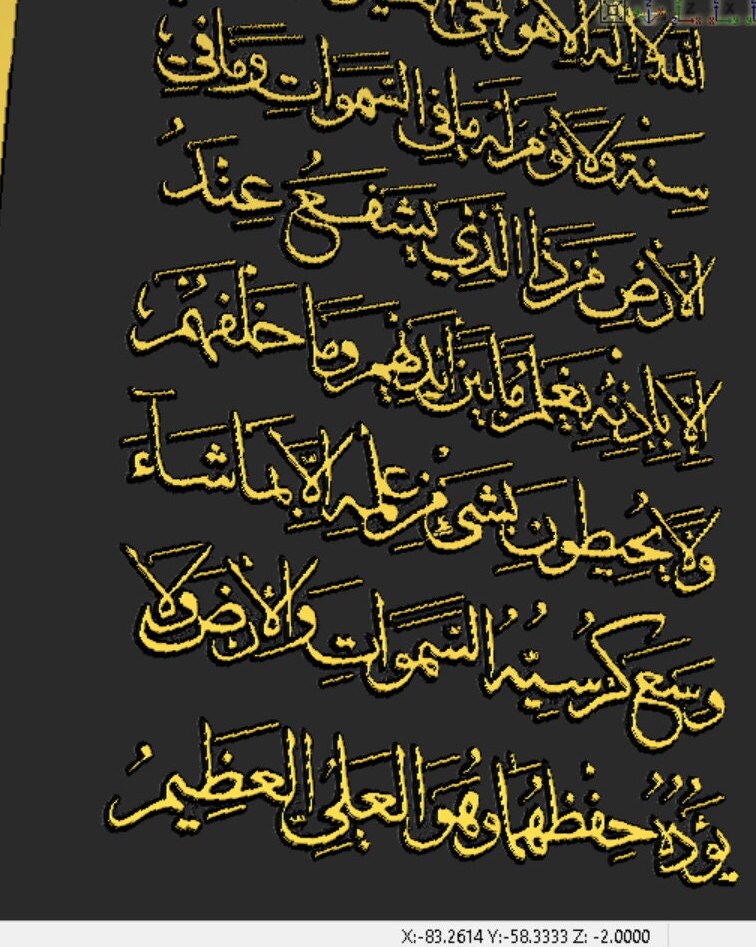 الله لا إله إلا هو الحي
سنة ولا نوم له ما في السموات وما في
الأرض من ذا الذي يشفع عند
إلا بإذنه يعلم ما بين أيديهم وما خلفهم
ولا يحيطون بشيء من علمه إلا بما شاء
وسع كرسيه السموات والأرض ولا
يؤده حفظهما وهو العلي العظيم
X:-83.2614 Y:-58.3333 Z: -2.0000